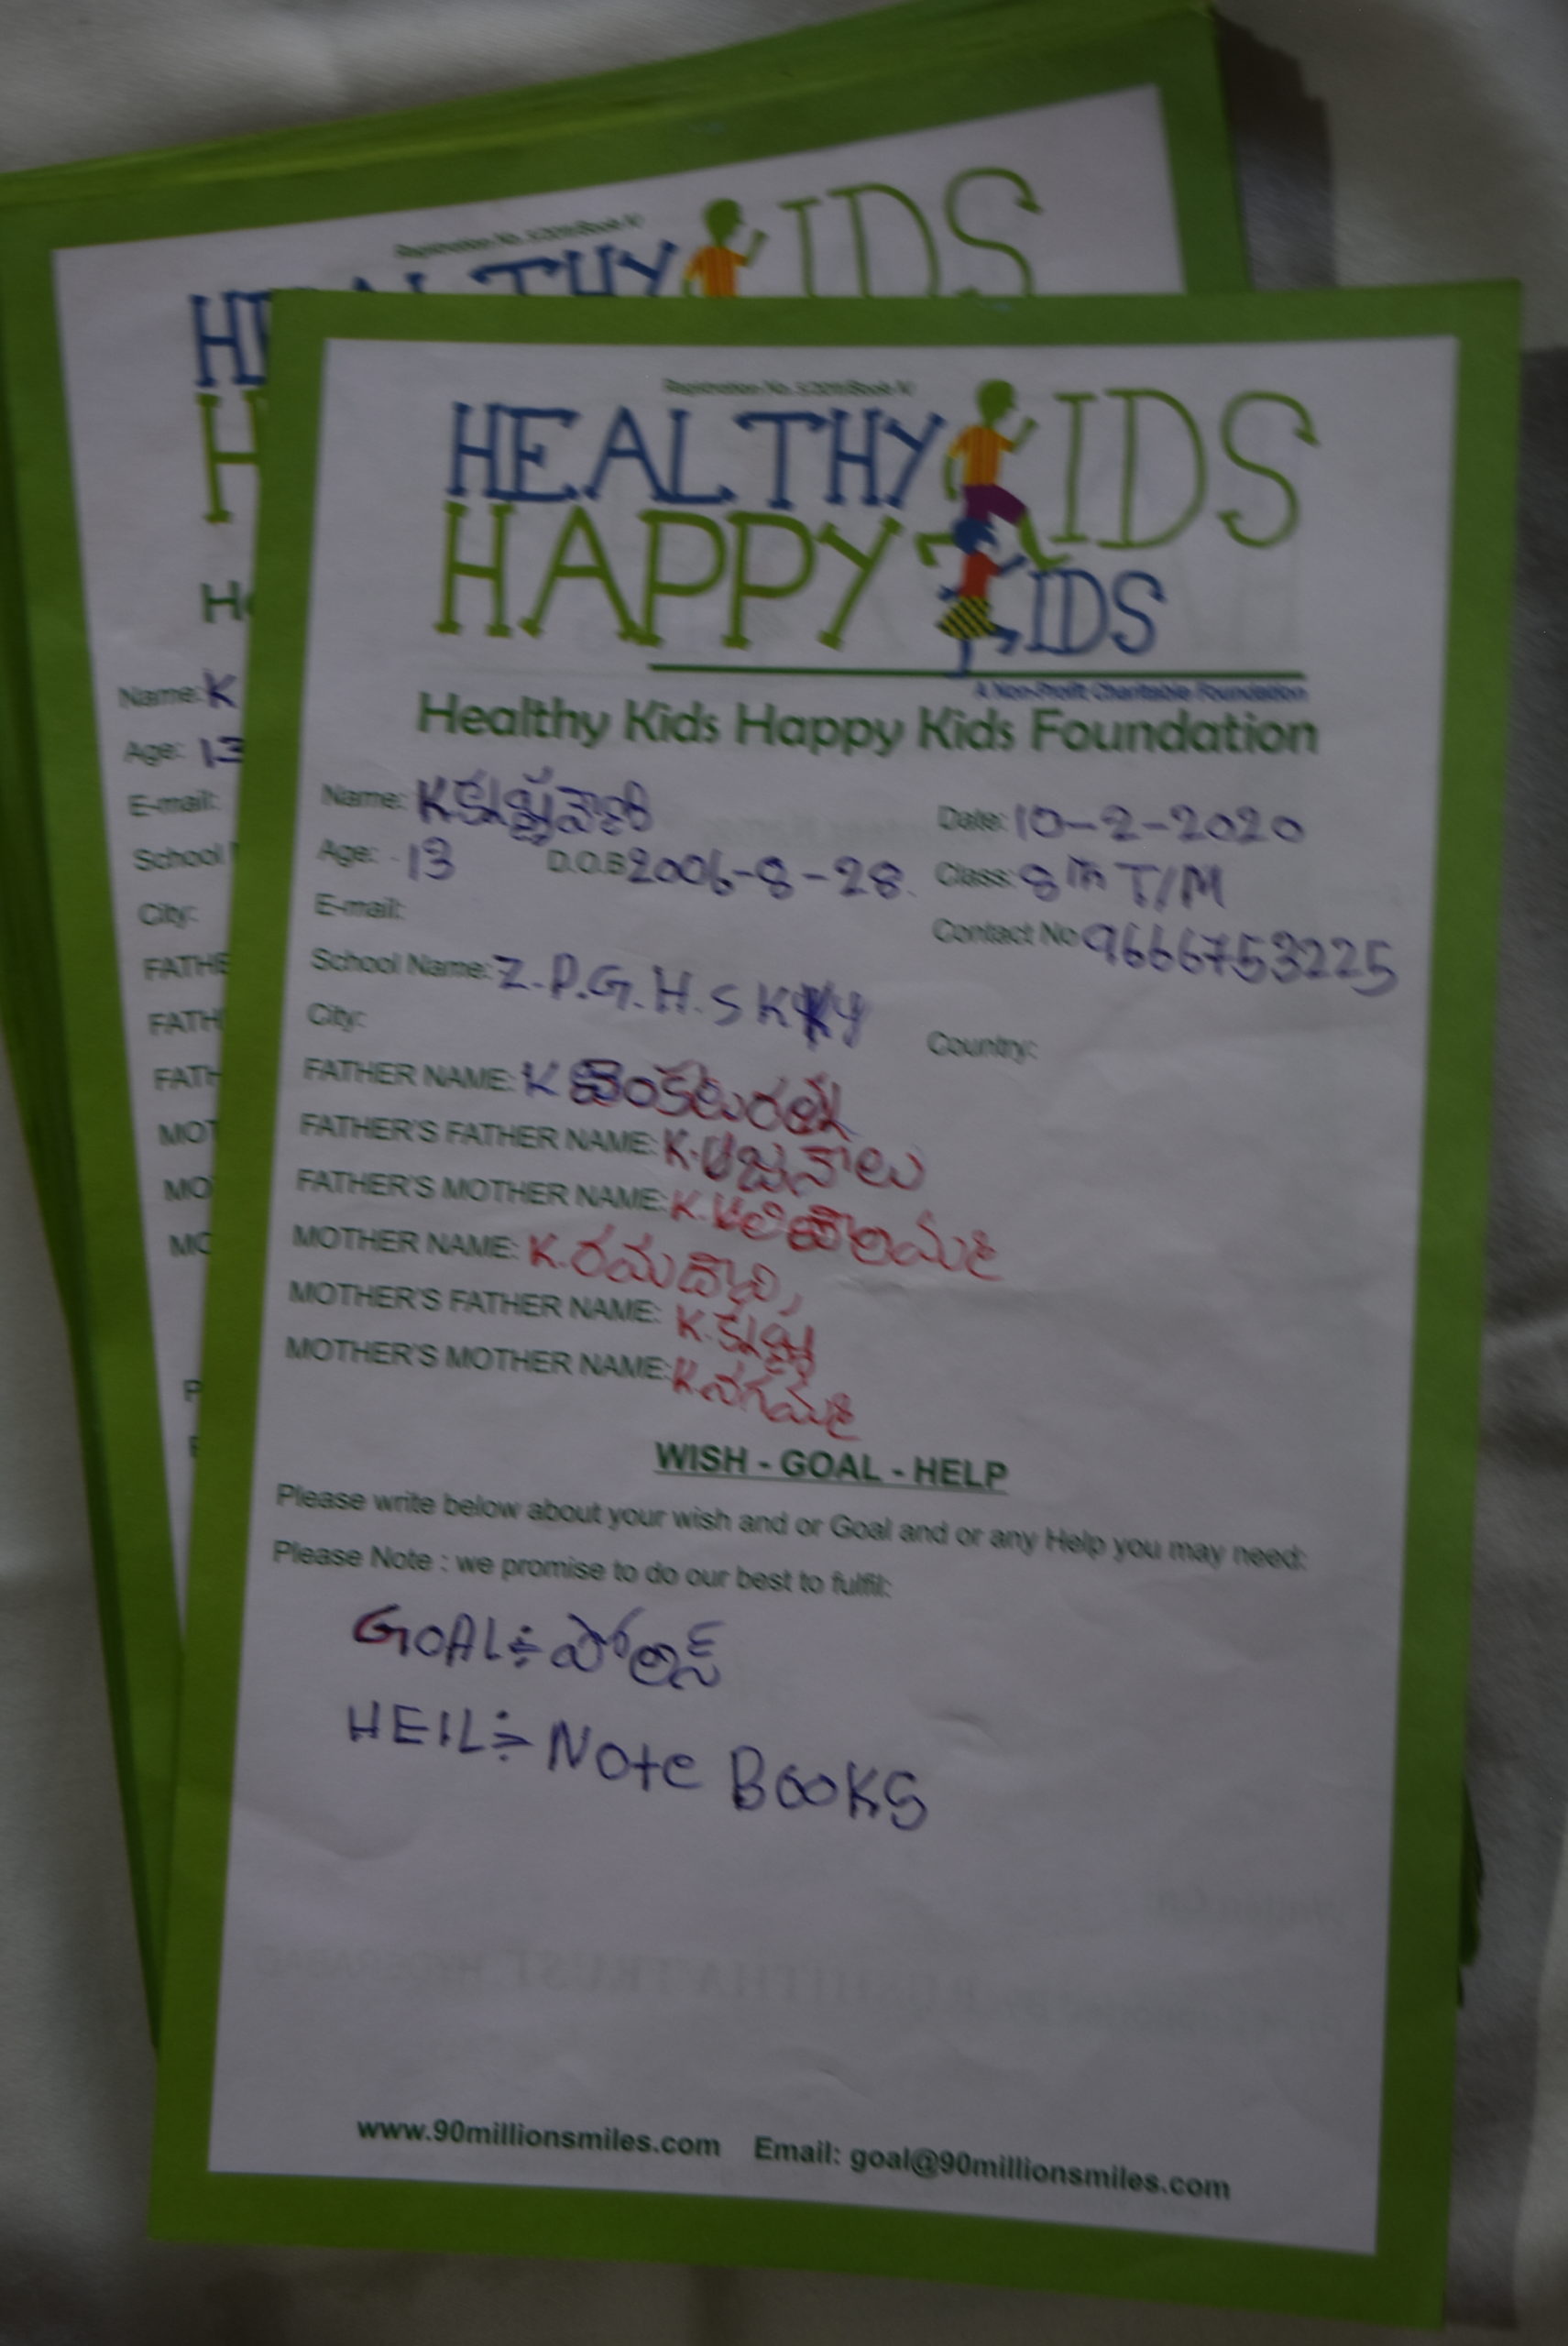 HEALTHY KIDS
H
H
Name: K
Age: 13
E-mail:
School
City:
FATHE
FATH
FATH
MOT
MO
MO
HEALTHY KIDS
HAPPY KIDS
A Non-Profit Charitable Foundation
Healthy Kids Happy Kids Foundation
Name: K Date: 10-2-2020
Age: 13 D.O.B 2006-8-28. Class: 8th T/M
E-mail: Contact No 9666753225
School Name: Z.P.G.H.S
City: Country:
FATHER NAME: K
FATHER'S FATHER NAME: K.
FATHER'S MOTHER NAME: K.
MOTHER NAME: K. రమాదేవి,
MOTHER'S FATHER NAME: K.
MOTHER'S MOTHER NAME: K. నగమ్మ
WISH - GOAL - HELP
Please write below about your wish and or Goal and or any Help you may need:
Please Note : we promise to do our best to fulfil:
GOAL÷ పోలిస్
HEIL÷ Note BOOKS
www.90millionsmiles.com Email: goal@90millionsmiles.com